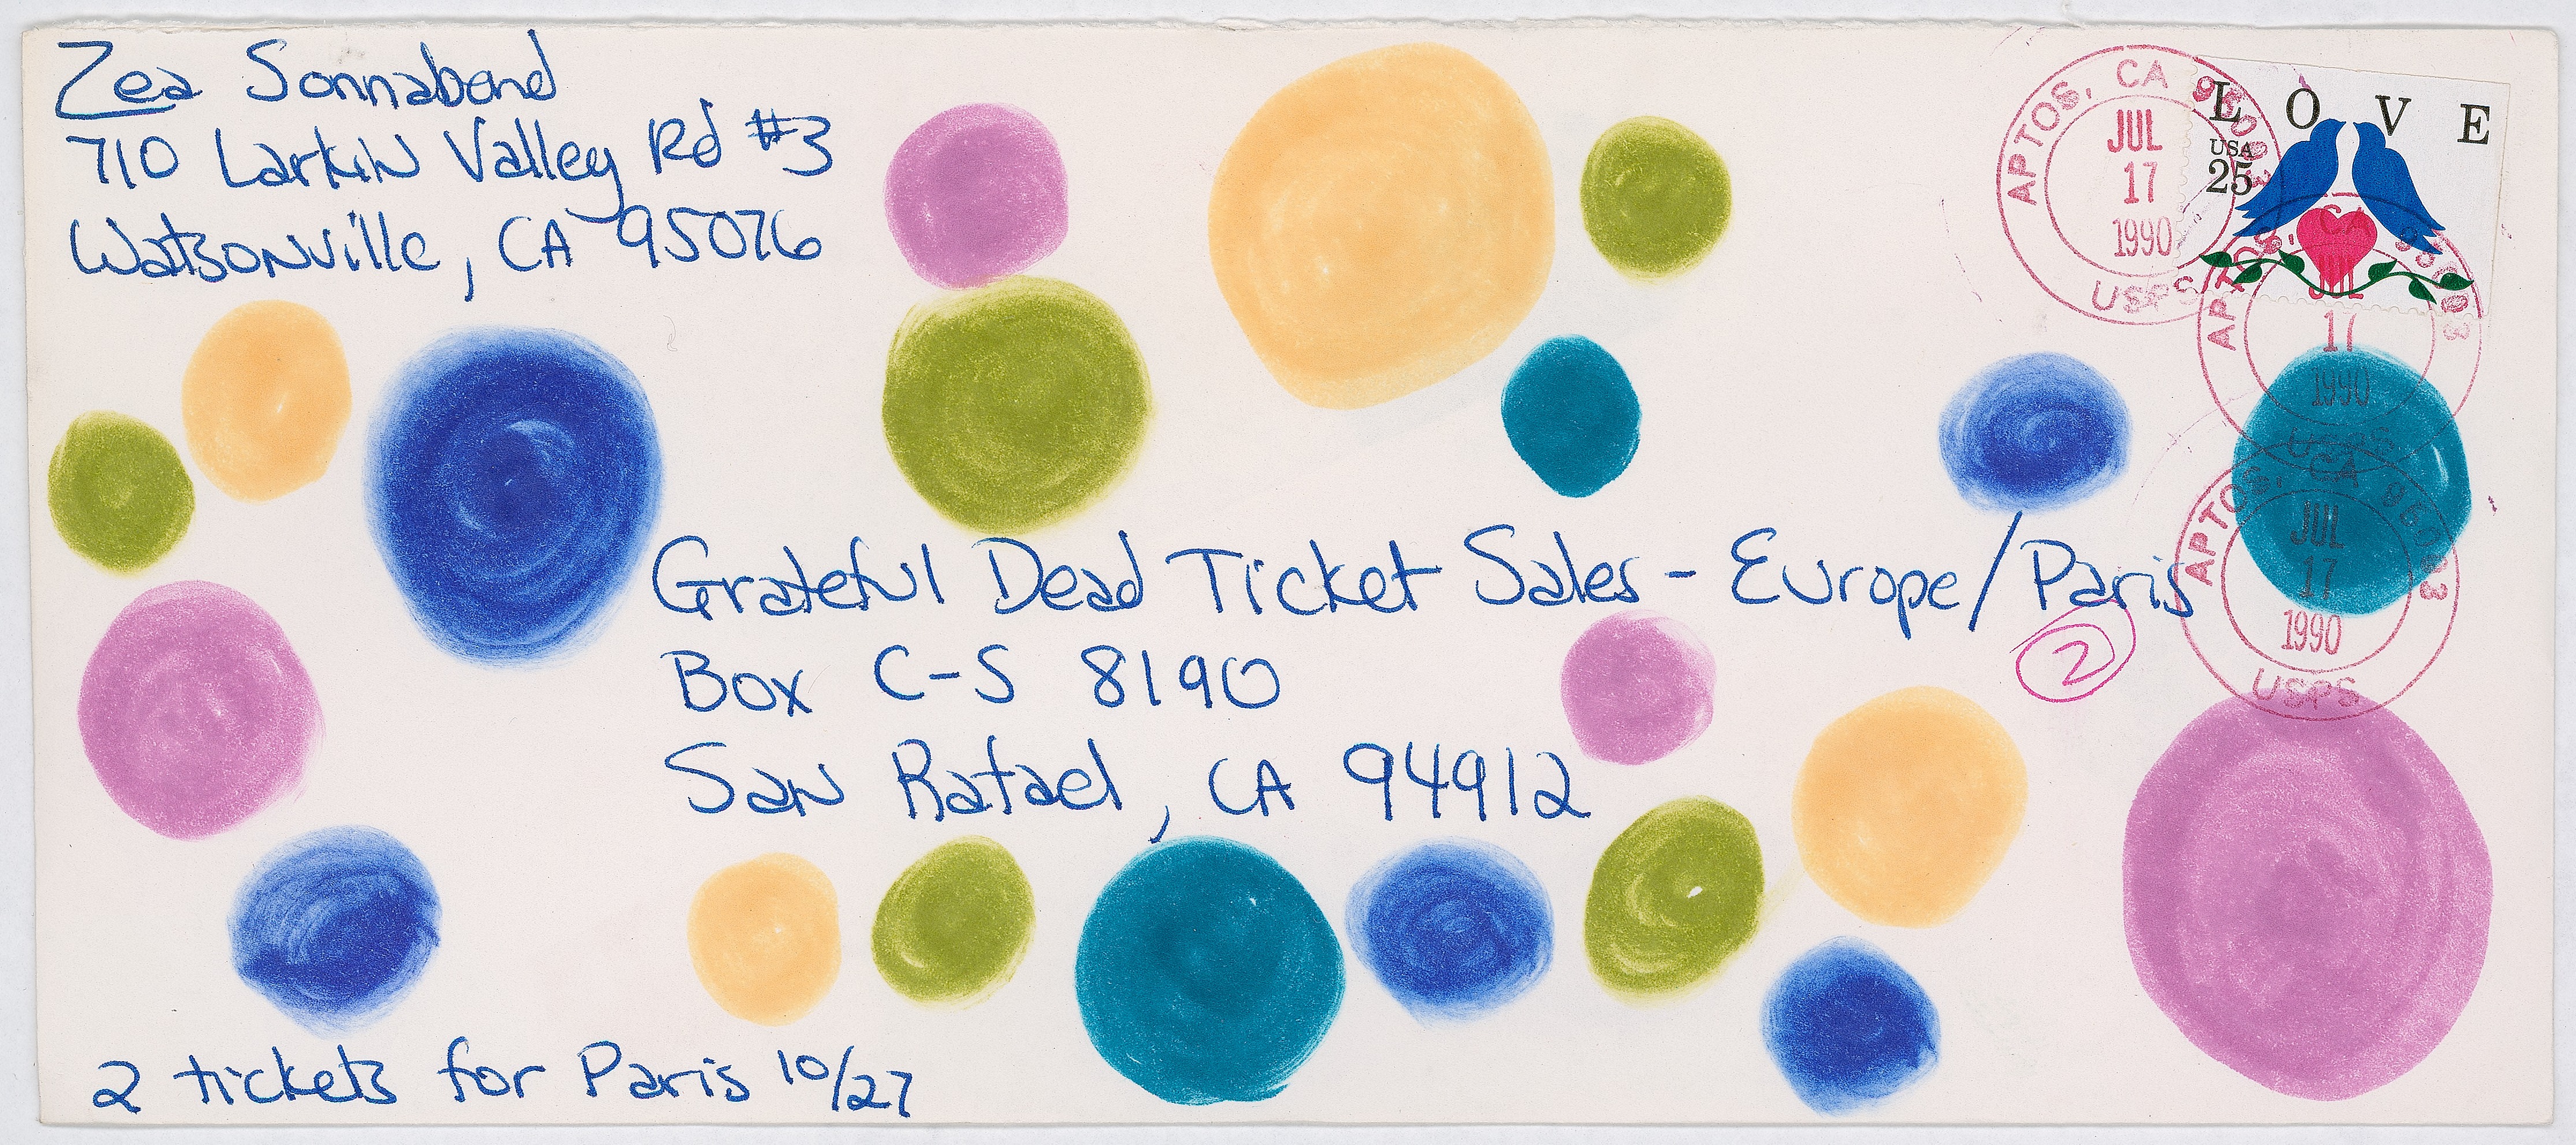 Zea Sonnabend
710 Larkin Valley Rd #3
Watsonville, CA 95076
APTOS, CA 95003
JUL
17
1990
USPS
LOVE
USA
25
APTOS, CA 95003
JUL
17
1990
USPS
APTOS, CA 95003
JUL
17
1990
USPS
Grateful Dead Ticket Sales - Europe/Paris
2
Box C-S 8190
San Rafael, CA 94912
2 tickets for Paris 10/27